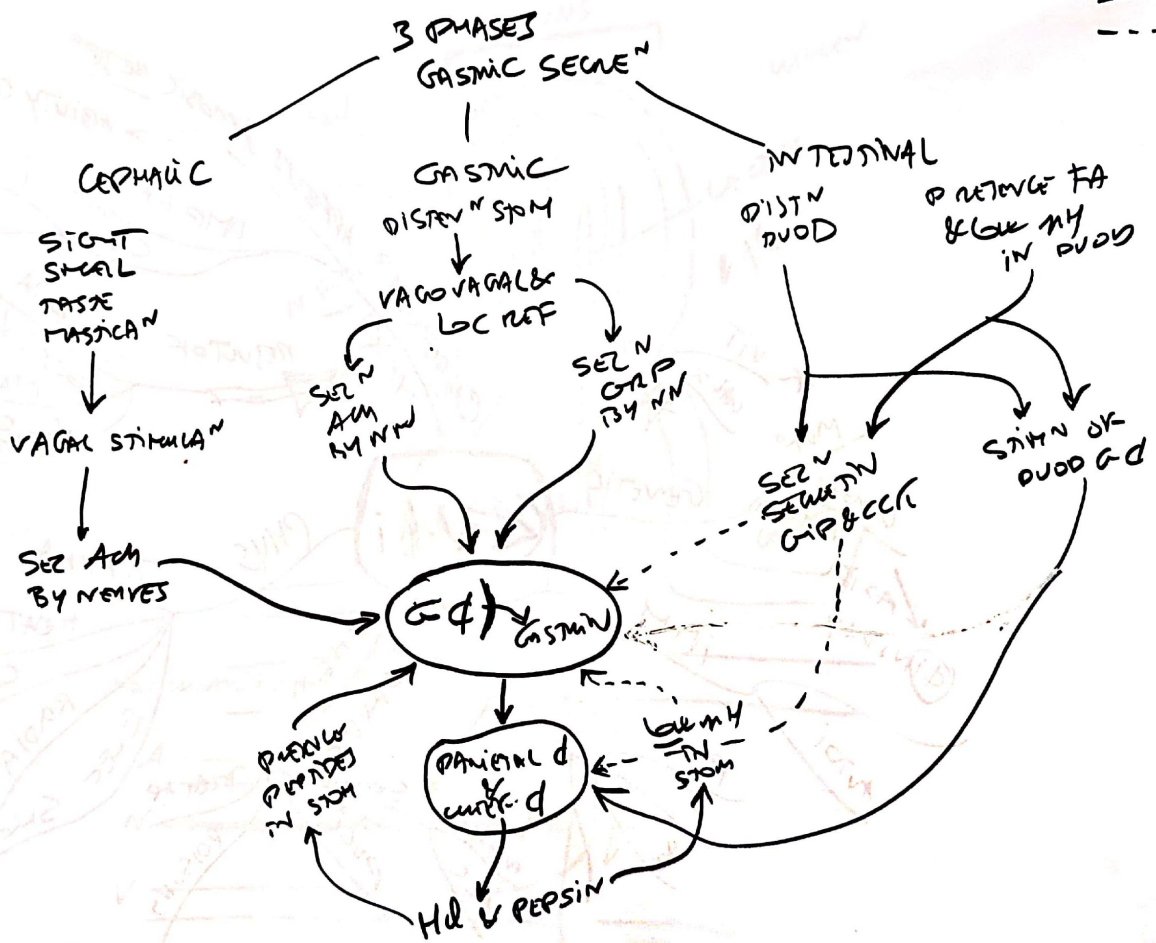 3 PHASES
GASTRIC SECRE^N
CEPHALIC
SIGHT
SMELL
TASTE
MASTICA^N
VAGAL STIMULA^N
SEZ ACH
BY NERVES
GASTRIC
DISTEN^N STOM
VAGOVAGAL &
LOC REF
SEZ^N
ACH
BY NN
SEZ^N
GRP
BY NN
INTESTINAL
DIST^N
DUOD
PRESENCE FA
& LOW pH
IN DUOD
SEZ^N
SECRETIN
GIP & CCK
STIM^N OF
DUOD G
G
GASTRIN
PARIETAL
&
CHIEF
PRESENCE
PEPTIDES
IN STOM
LOW pH
IN
STOM
HCl & PEPSIN